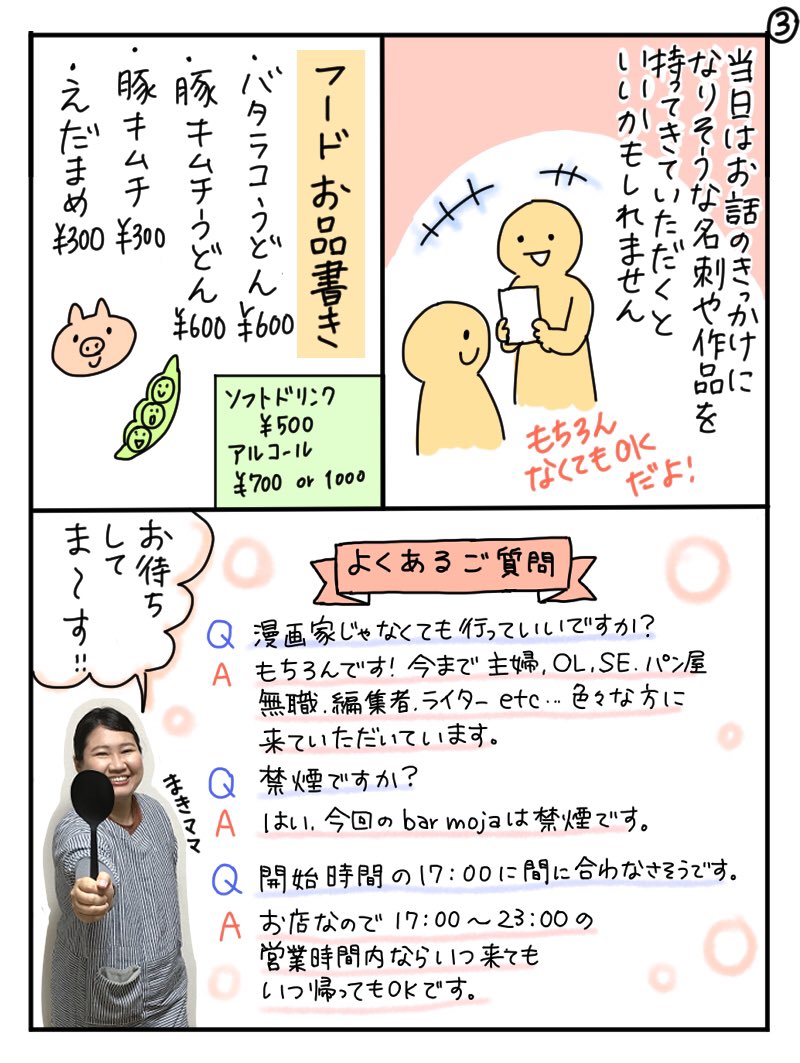 ③
当日はお話のきっかけに
なりそうな名刺や作品を
持ってきていただくと
いいかもしれません
もちろん
なくてもOK
だよ!
フードお品書き
・バタラコうどん ¥600
・豚キムチうどん ¥600
・豚キムチ ¥300
・えだまめ ¥300
ソフトドリンク
¥500
アルコール
¥700 or 1000
お待ち
して
ま〜す!!
まきママ
よくあるご質問
Q 漫画家じゃなくても行っていいですか?
A もちろんです! 今まで主婦,OL,SE.パン屋
無職.編集者.ライターetc…色々な方に
来ていただいています。
Q 禁煙ですか?
A はい.今回のbar mojaは禁煙です。
Q 開始時間の17:00に間に合わなさそうです。
A お店なので17:00〜23:00の
営業時間内ならいつ来ても
いつ帰ってもOKです。